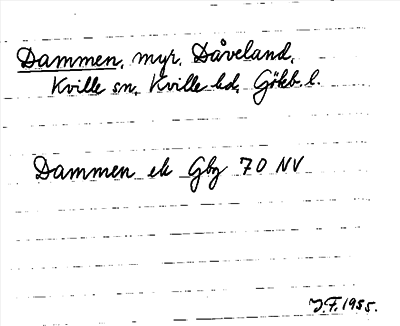 Dammen, myr, Dåveland,
Kville sn, Kville hd, Göteb. l.
Dammen ek Gbg 70 NV
J.F. 1955.